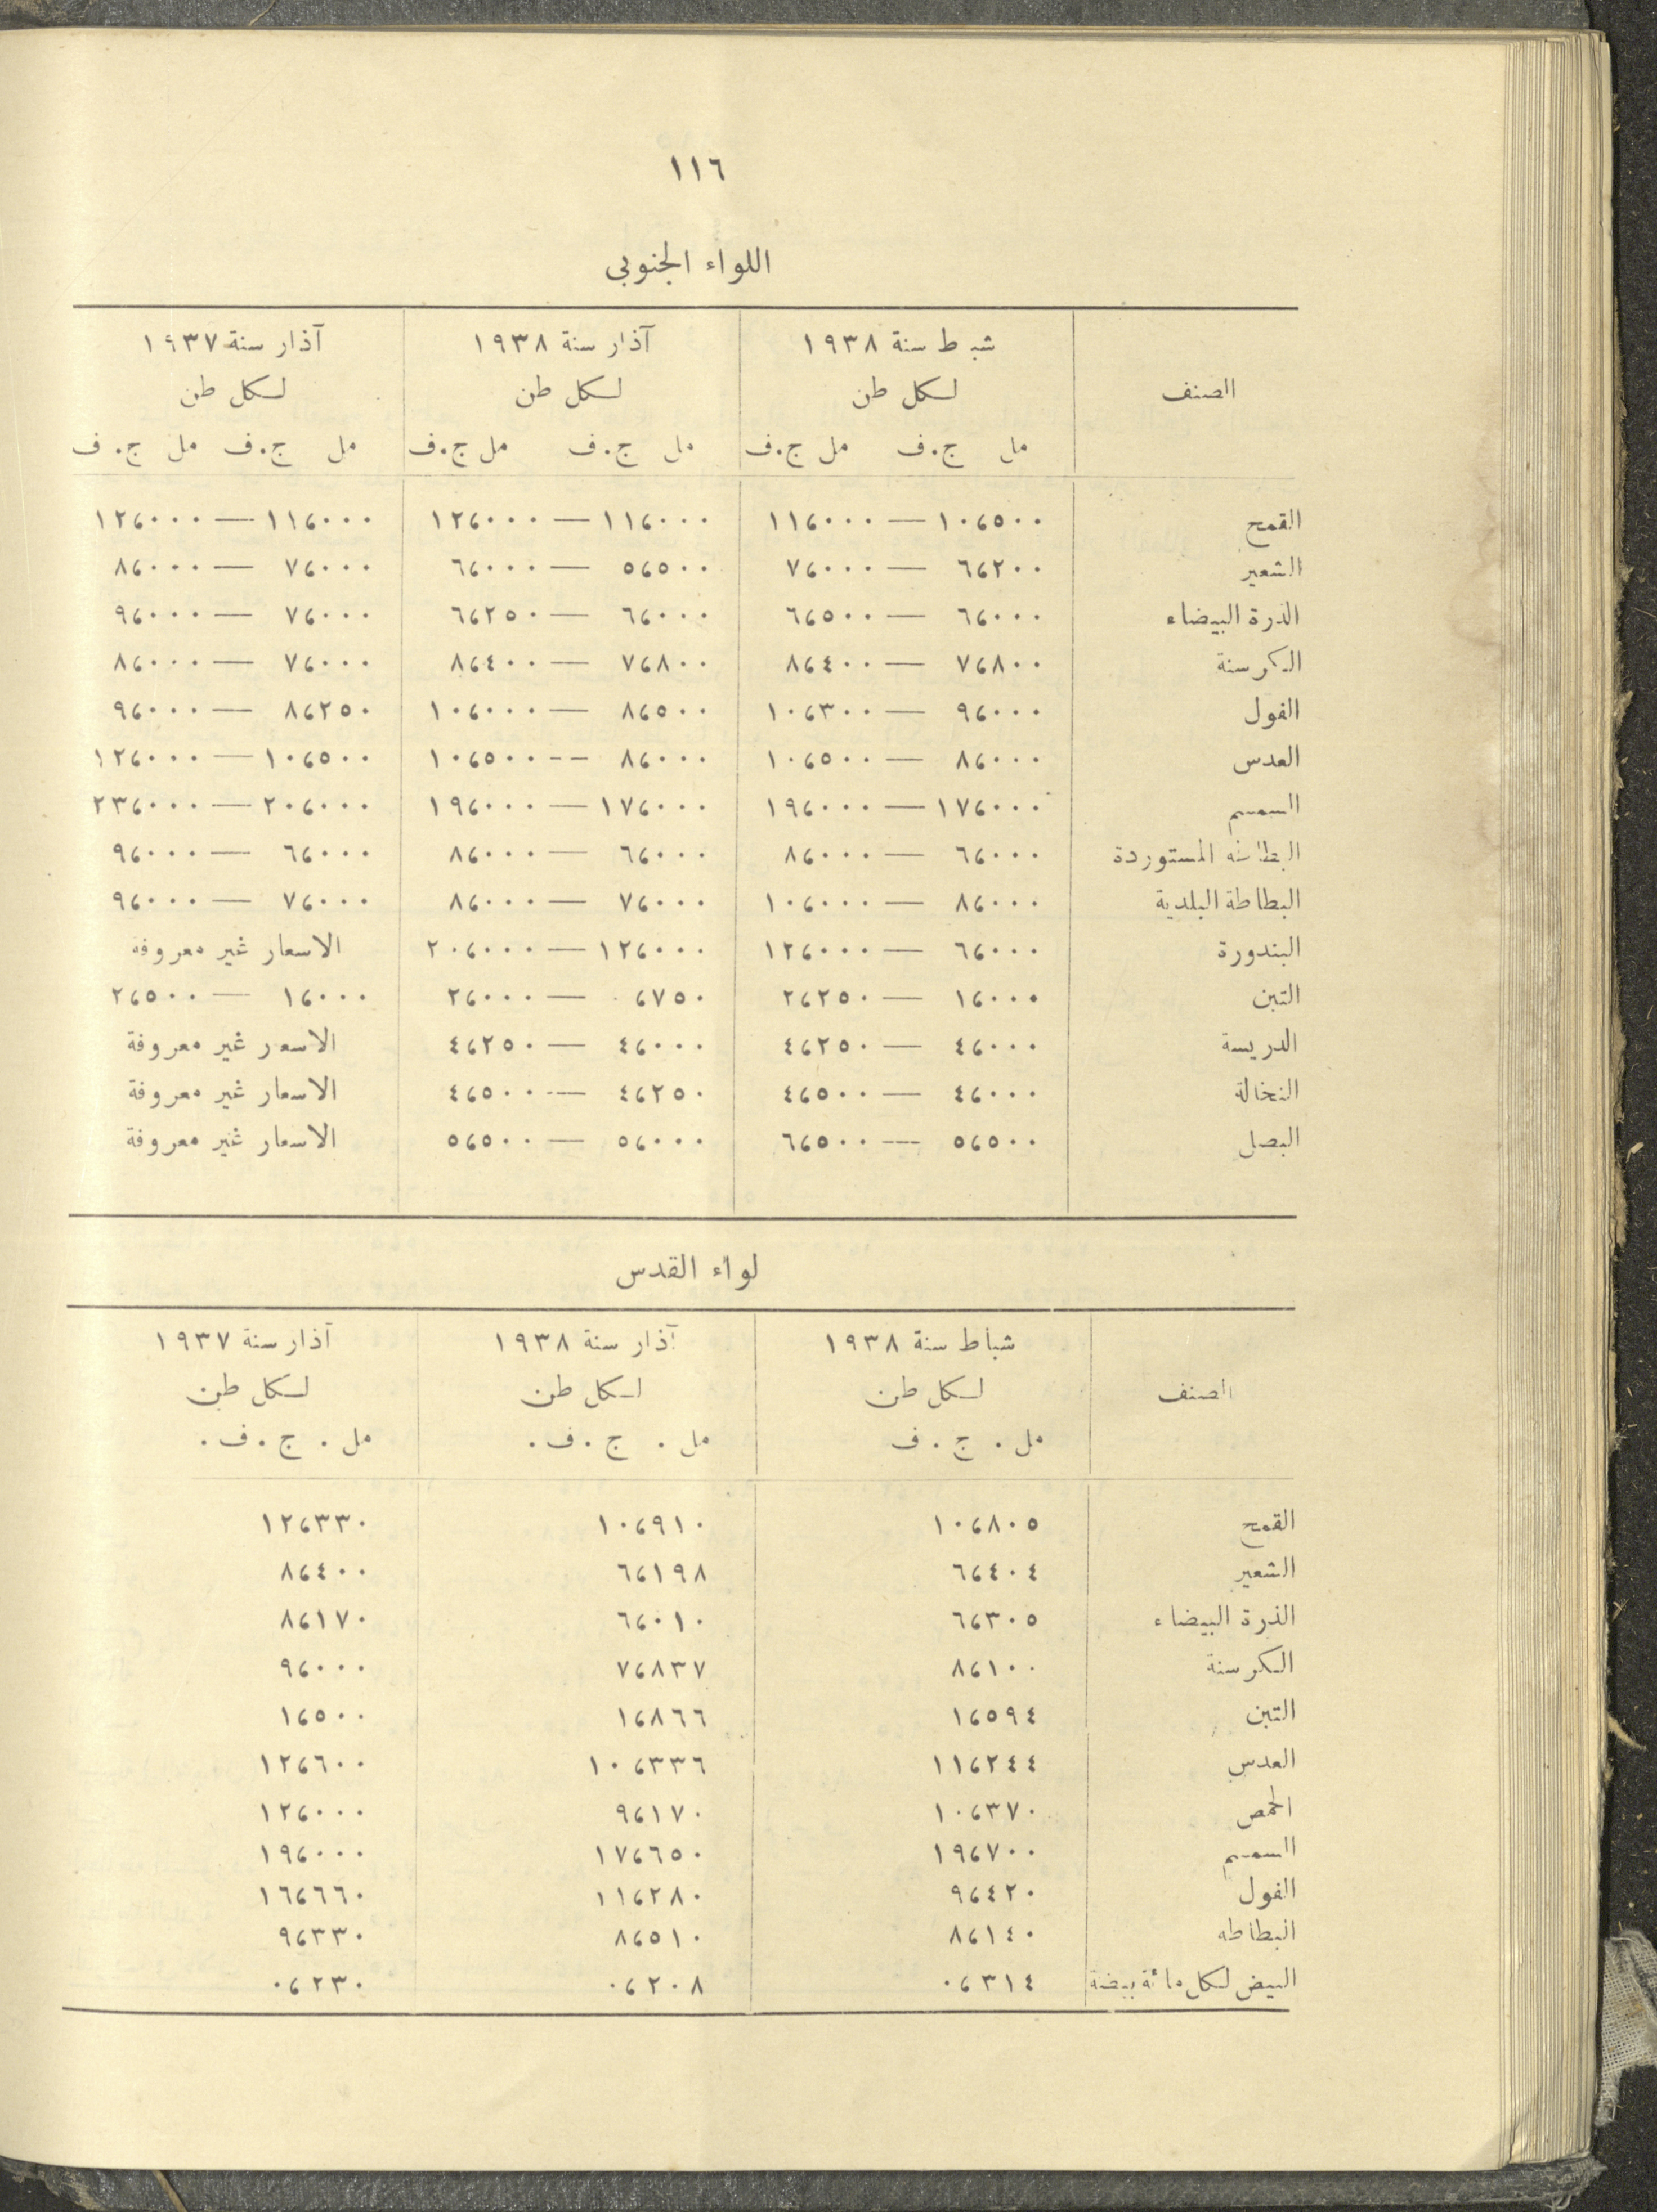 ١١٦
اللواء الجنوبي
الصنف شبط سنة ١٩٣٨ آذار سنة ١٩٣٨ آذار سنة ١٩٣٧
لكل طن لكل طن لكل طن
مل ج.ف مل ج.ف مل ج.ف مل ج.ف مل ج.ف مل ج.ف
القمح ١٠،٥٠٠ — ١١،٠٠٠ ١١،٠٠٠ — ١٢،٠٠٠ ١١،٠٠٠ — ١٢،٠٠٠
الشعير ٦،٢٠٠ — ٧،٠٠٠ ٥،٥٠٠ — ٦،٠٠٠ ٧،٠٠٠ — ٨،٠٠٠
الذرة البيضاء ٦،٠٠٠ — ٦،٥٠٠ ٦،٠٠٠ — ٦،٢٥٠ ٧،٠٠٠ — ٩،٠٠٠
الكرسنة ٧،٨٠٠ — ٨،٤٠٠ ٧،٨٠٠ — ٨،٤٠٠ ٧،٠٠٠ — ٨،٠٠٠
الفول ٩،٠٠٠ — ١٠،٣٠٠ ٨،٥٠٠ — ١٠،٠٠٠ ٨،٢٥٠ — ٩،٠٠٠
العدس ٨،٠٠٠ — ١٠،٥٠٠ ٨،٠٠٠ — ١٠،٥٠٠ ١٠،٥٠٠ — ١٢،٠٠٠
السمسم ١٧،٠٠٠ — ١٩،٠٠٠ ١٧،٠٠٠ — ١٩،٠٠٠ ٢٠،٠٠٠ — ٢٣،٠٠٠
البطاطه المستوردة ٦،٠٠٠ — ٨،٠٠٠ ٦،٠٠٠ — ٨،٠٠٠ ٦،٠٠٠ — ٩،٠٠٠
البطاطة البلدية ٨،٠٠٠ — ١٠،٠٠٠ ٧،٠٠٠ — ٨،٠٠٠ ٧،٠٠٠ — ٩،٠٠٠
البندورة ٦،٠٠٠ — ١٢،٠٠٠ ١٢،٠٠٠ — ٢٠،٠٠٠ الاسعار غير معروفة
التبن ١،٠٠٠ — ٢،٢٥٠ ٠،٧٥٠ — ٢،٠٠٠ ١،٠٠٠ — ٢،٥٠٠
الدريسة ٤،٠٠٠ — ٤،٢٥٠ ٤،٠٠٠ — ٤،٢٥٠ الاسعار غير معروفة
النخالة ٤،٠٠٠ — ٤،٥٠٠ ٤،٢٥٠ — ٤،٥٠٠ الاسعار غير معروفة
البصل ٥،٥٠٠ — ٦،٥٠٠ ٥،٠٠٠ — ٥،٥٠٠ الاسعار غير معروفة
لواء القدس
الصنف شباط سنة ١٩٣٨ آذار سنة ١٩٣٨ آذار سنة ١٩٣٧
لكل طن لكل طن لكل طن
مل . ج . ف مل . ج . ف . مل . ج . ف .
القمح ١٠،٨٠٥ ١٠،٩١٠ ١٢،٣٣٠
الشعير ٦،٤٠٤ ٦،١٩٨ ٨،٤٠٠
الذرة البيضاء ٦،٣٠٥ ٦،٠١٠ ٨،١٧٠
الكرسنة ٨،١٠٠ ٧،٨٣٧ ٩،٠٠٠
التبن ١،٥٩٤ ١،٨٦٦ ١،٥٠٠
العدس ١١،٢٤٤ ١٠،٣٣٦ ١٢،٦٠٠
الحمص ١٠،٣٧٠ ٩،١٧٠ ١٢،٠٠٠
السمسم ١٩،٧٠٠ ١٧،٦٥٠ ١٩،٠٠٠
الفول ٩،٤٢٠ ١١،٢٨٠ ١٦،٦٦٠
البطاطه ٨،١٤٠ ٨،٥١٠ ٩،٣٣٠
البيض لكل مائة بيضة ٠،٣١٤ ٠،٢٠٨ ٠،٢٣٠